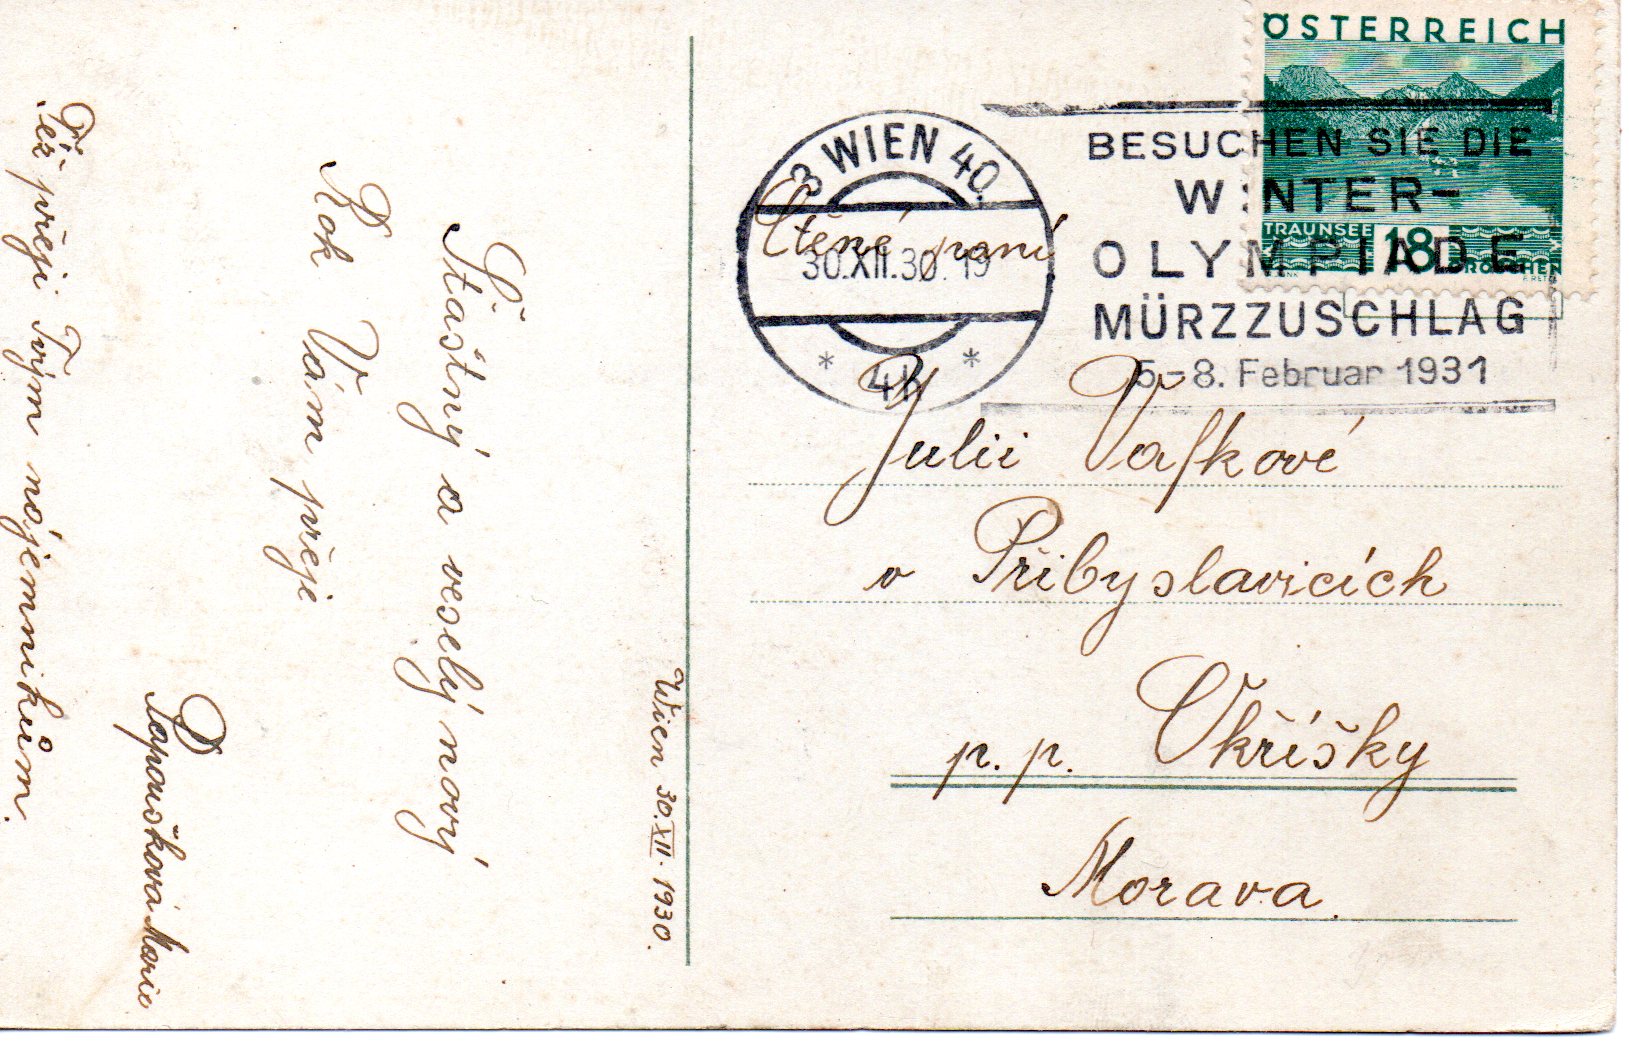 Wien 30.XII.1930.
Šťastný a veselý nový
Rok Vám přeje
Papoušková Marie
Též přeji Tvým nájemníkům.
ÖSTERREICH
TRAUNSEE
18 GROSCHEN
3 WIEN 40
30.XII.30. 19
* 4h *
BESUCHEN SIE DIE
WINTER-
OLYMPIADE
MÜRZZUSCHLAG
5.-8. Februar 1931
Ctěné paní
Julii Vafkové
v Přibyslavicích
p. p. Okříšky
Morava.